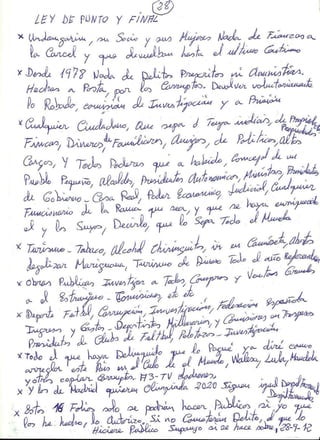 28
LEY DE PUNTO Y FINAL
x Urdangarin, su Socio y sus Mujeres Nada de Fianzas a
la Carcel y que devuelban hasta el ultimo Centimo
x Desde 1978 Nada de Delitos Prescritos ni Amnistias.
Hechas a Posta, por los Corruptos. Devolver voluntariamente
lo Robado, comisión de Investigación y a Prisión
x Cualquier Ciudadano, Que sepa o Tenga indicios, de Propiedades
Fincas, Dineros, Familiares, Amigos, de Politicos, Altos
Cargos, Y Todos Poderes que a habido, Concejal de un
Pueblo Pequeño, Alcalde, Presidentes Autonomicos, Ministros, Presidentes
de Gobierno - Casa Real, Poder Economico, Judicial, Cualquier
Funcionario de la Rama que sea, y que se haya enriquecido
el y los Suyos, Decirlo, que lo Sepa Todo el Mundo
x Turismo - Tabaco, Alcohol Chiringuitos, ir en Camiseta, Abrirlos
legalizar Mariguana, Turismo de Dinero Todo el año
x Obras Publicas Investigar a Todos, Compras y Ventas Grandes
a el Estranjero - Comisiones, etc etc
x Deporte Futbol, Corrupción, Investigación, Federación Española
Ingresos y Gastos - Deportistas Millonarios, y Comisiones en
Presidentes de Clubs de Futbol, Pelotazos - Investigación
x Todo el que haya Delinquido que lo Pague ya dire como
arreglar este Pais ni el Cabo de el Mundo Walesa, Lula, Mandela
y otros copiar
x Y los de Madrid quieren Olimpiada 2020 Siguen igual
x Estos 18 Folios solo se podrán hacer Publicos si yo que
los he hecho, lo Autorizo. Si no Cometerian Delito, el que lo
Hiciere Publico Supongo si se hace sobre, 28-9-12